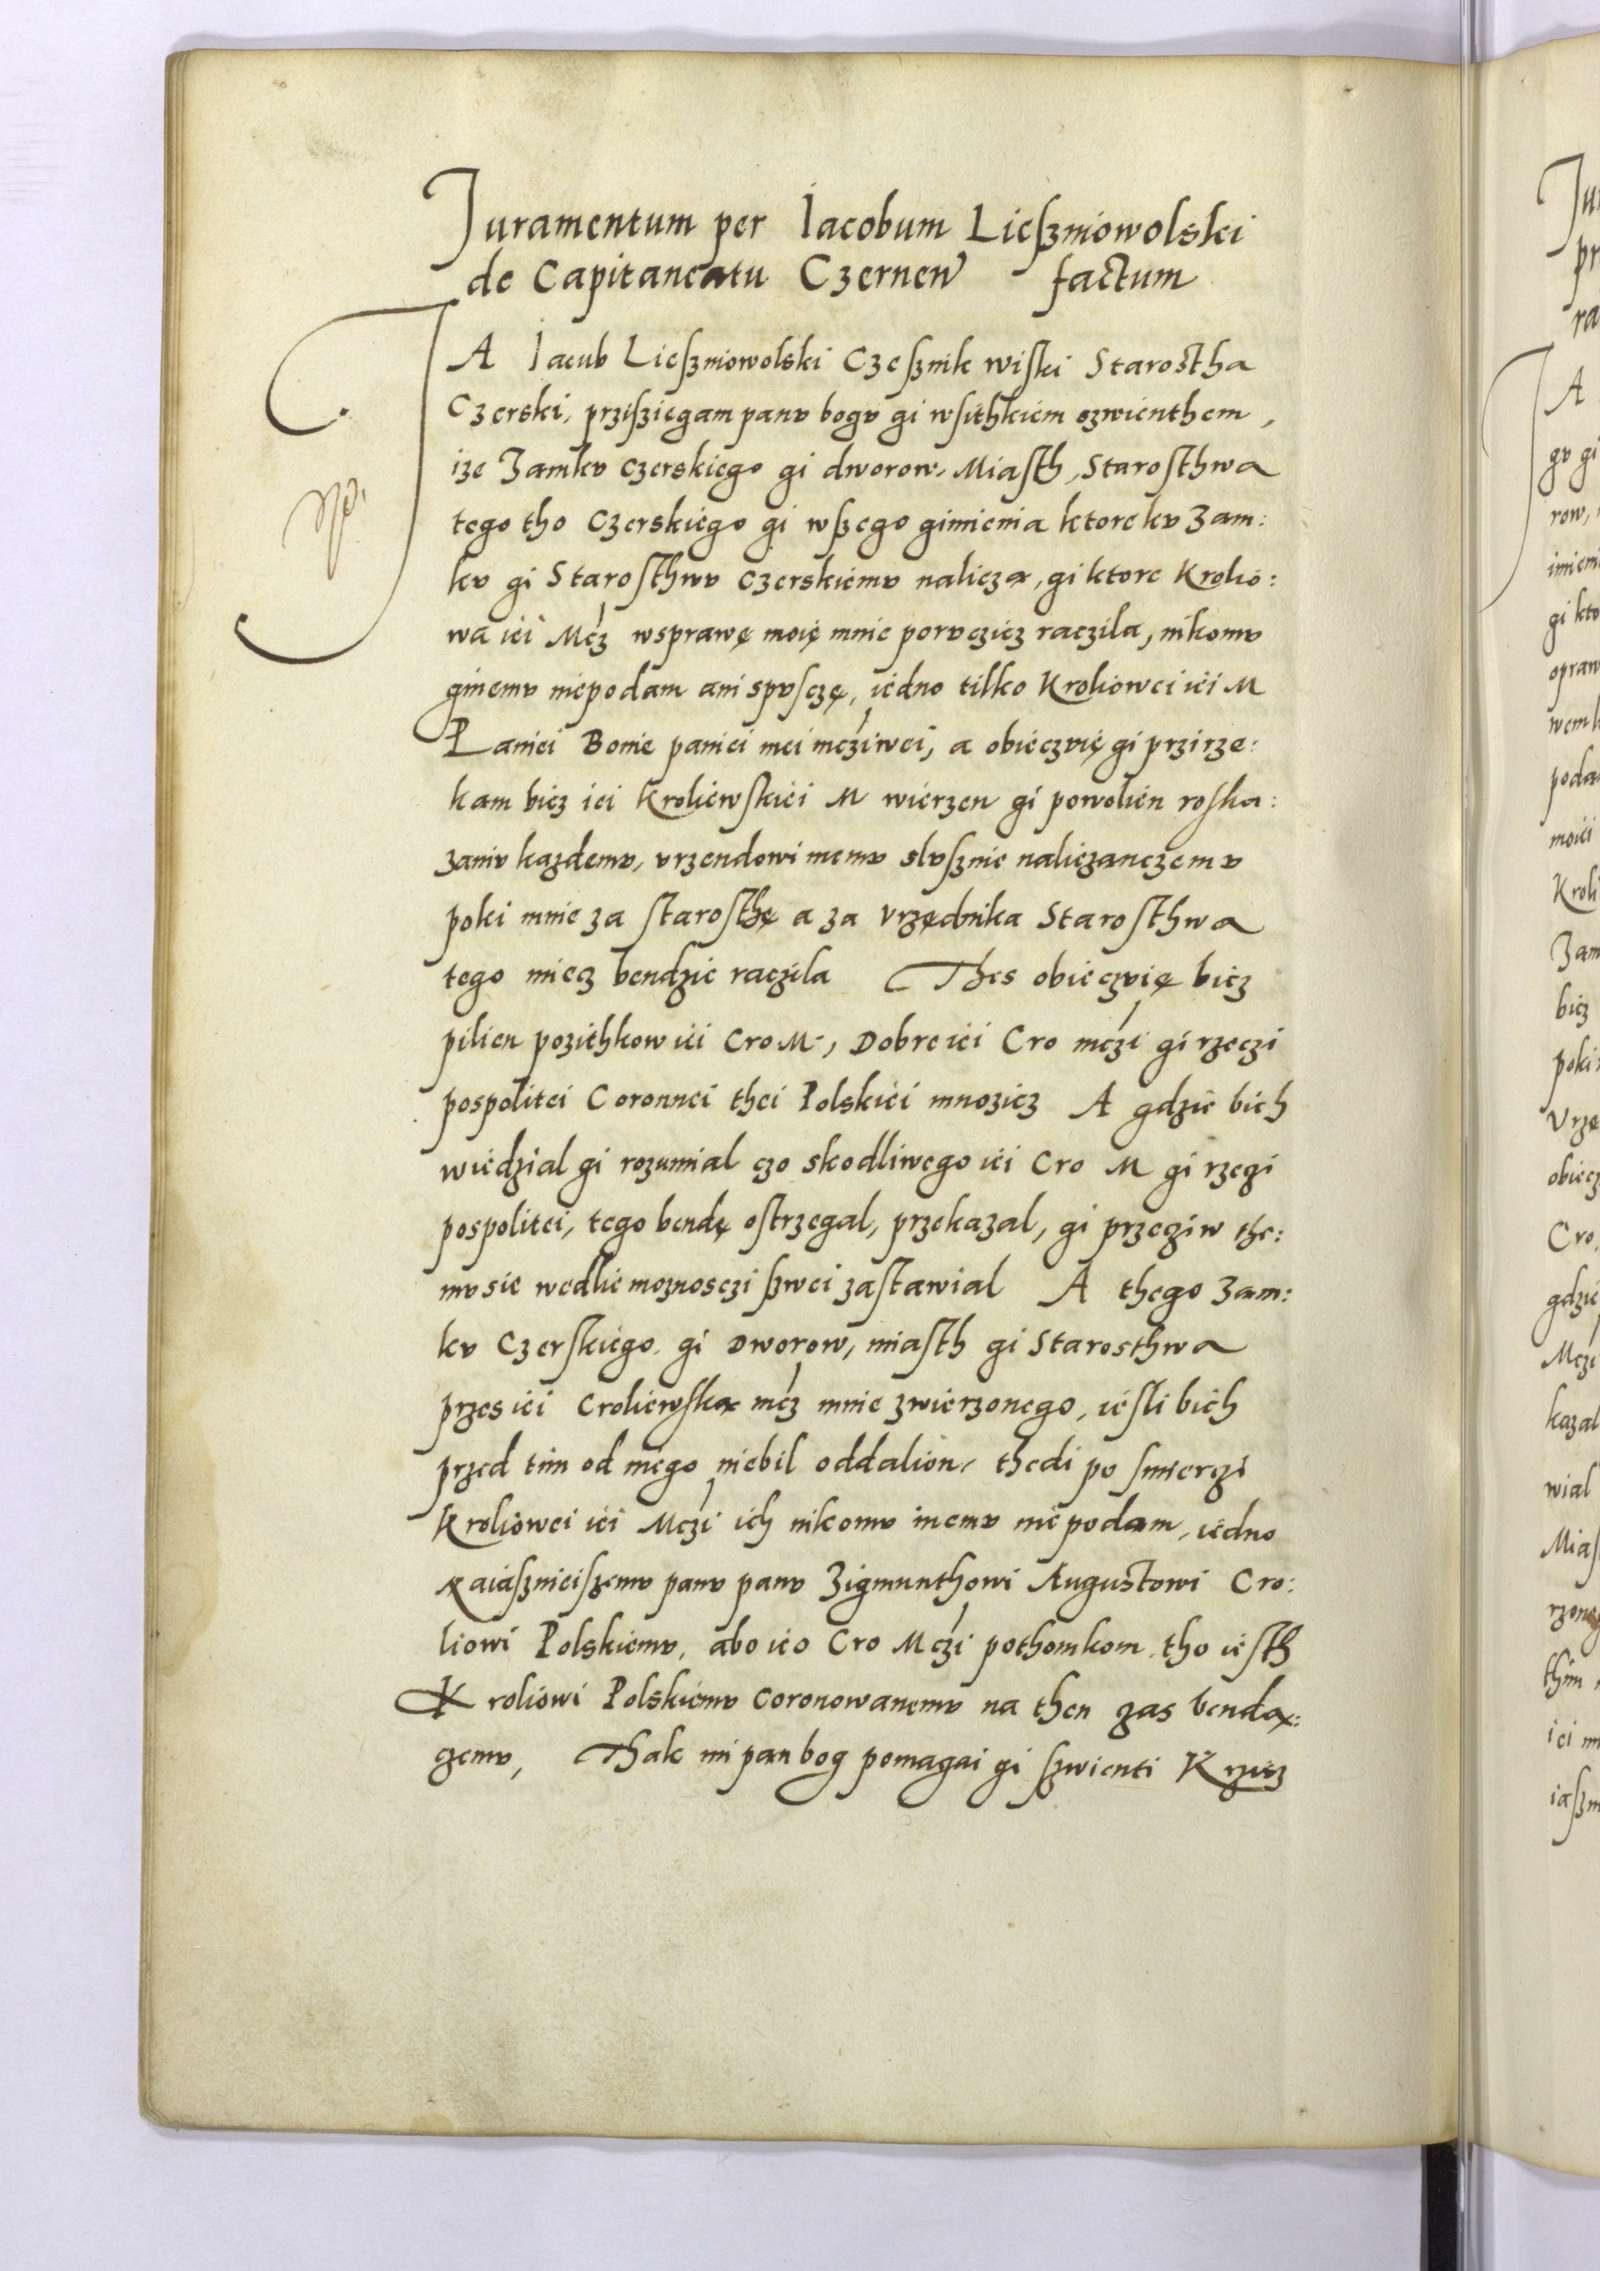 Juramentum per Iacobum Lieszniowolski
de Capitaneatu Czernen factum
JA Iacub Lieszniowolski Czesznik wiski Starostha
Czerski, przisziegam panv bogv gi wsithkiem szwienthem,
ize Zamkv czerskiego gi dworow, Miasth, Starosthwa
tego tho Czerskiego gi wszego gimienia ktore kv Zam:
kv gi Starosthwv czerskiemv nalieza, gi ktore Krolio:
wa iei Mcz wsprawę moię mnie porvczicz raczila, nikomv
ginemv niepodam ani spvsczę, iedno tilko Kroliowei iei M
Paniei Bonie paniei mei mcziwei, a obieczvię gi przirze:
kam bicz iei Kroliewskiei M wierzen gi powolien roska:
zaniv kazdemv, vrzendowi memv slvsznie naliezanczemv
poki mnie za starosthę a za vrzędnika Starosthwa
tego miecz bendzie raczila Thes obieczvię bicz
pilien pozithkow iei Cro M, Dobre iei Cro mczi gi rzeczi
pospolitei Coronnei thei Polskiei mnozicz A gdzie bich
wiedzial gi rozumial czo skodliwego iei Cro M gi rzeczi
pospolitei, tego bendę ostrzegal, przekazal, gi przeciw the:
mv sie wedlie moznosczi szwei zastawial A thego Zam:
kv Czerskiego gi Dworow, miasth gi Starosthwa
przes iei Croliewska mcz mnie zwierzonego, iesli bich
przed tim od niego niebil oddalion, thedi po smierczi
Kroliowei iei Mczi ich nikomv inemv niepodam, iedno
Naiaszniejszemv panv panv Zigmunthowi Augustowi Cro:
liowi Polskiemv, abo ieo Cro Mczi pothomkom tho iesth
Kroliowi Polskiemv coronowanemv na then czas benda:
czemv, Thak mi pan bog pomagai gi szwienti Krzisz